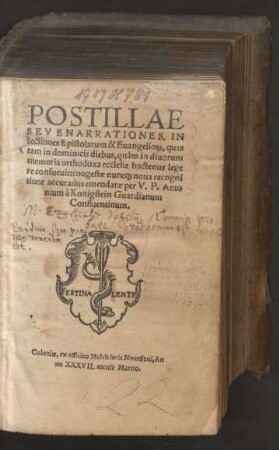 POSTILLAE
SEV ENARRATIONES, IN
lectiones Epistolarum & Euangeliorũ, quas
tam in dominicis diebus, quàm in diuorum
memoria orthodoxa ecclesia hactenus lege
re consueuit: congestæ nuncq; noua recogni
tione accuratius emendatæ per V. P. Anto
nium à Konigstein Guardianum
Confluentinum.
FESTINA LENTE
Coloniæ, ex officina Melchioris Nouesiani, An
no XXXVII. mense Martio.
22